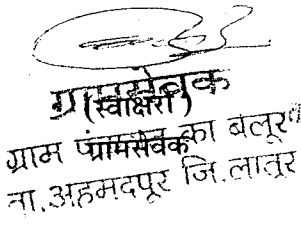 ग्रामसेवक
(स्वाक्षरी)
ग्राम का बलूर
ग्रामसेवक
ता.अहमदपूर जि.लातूर